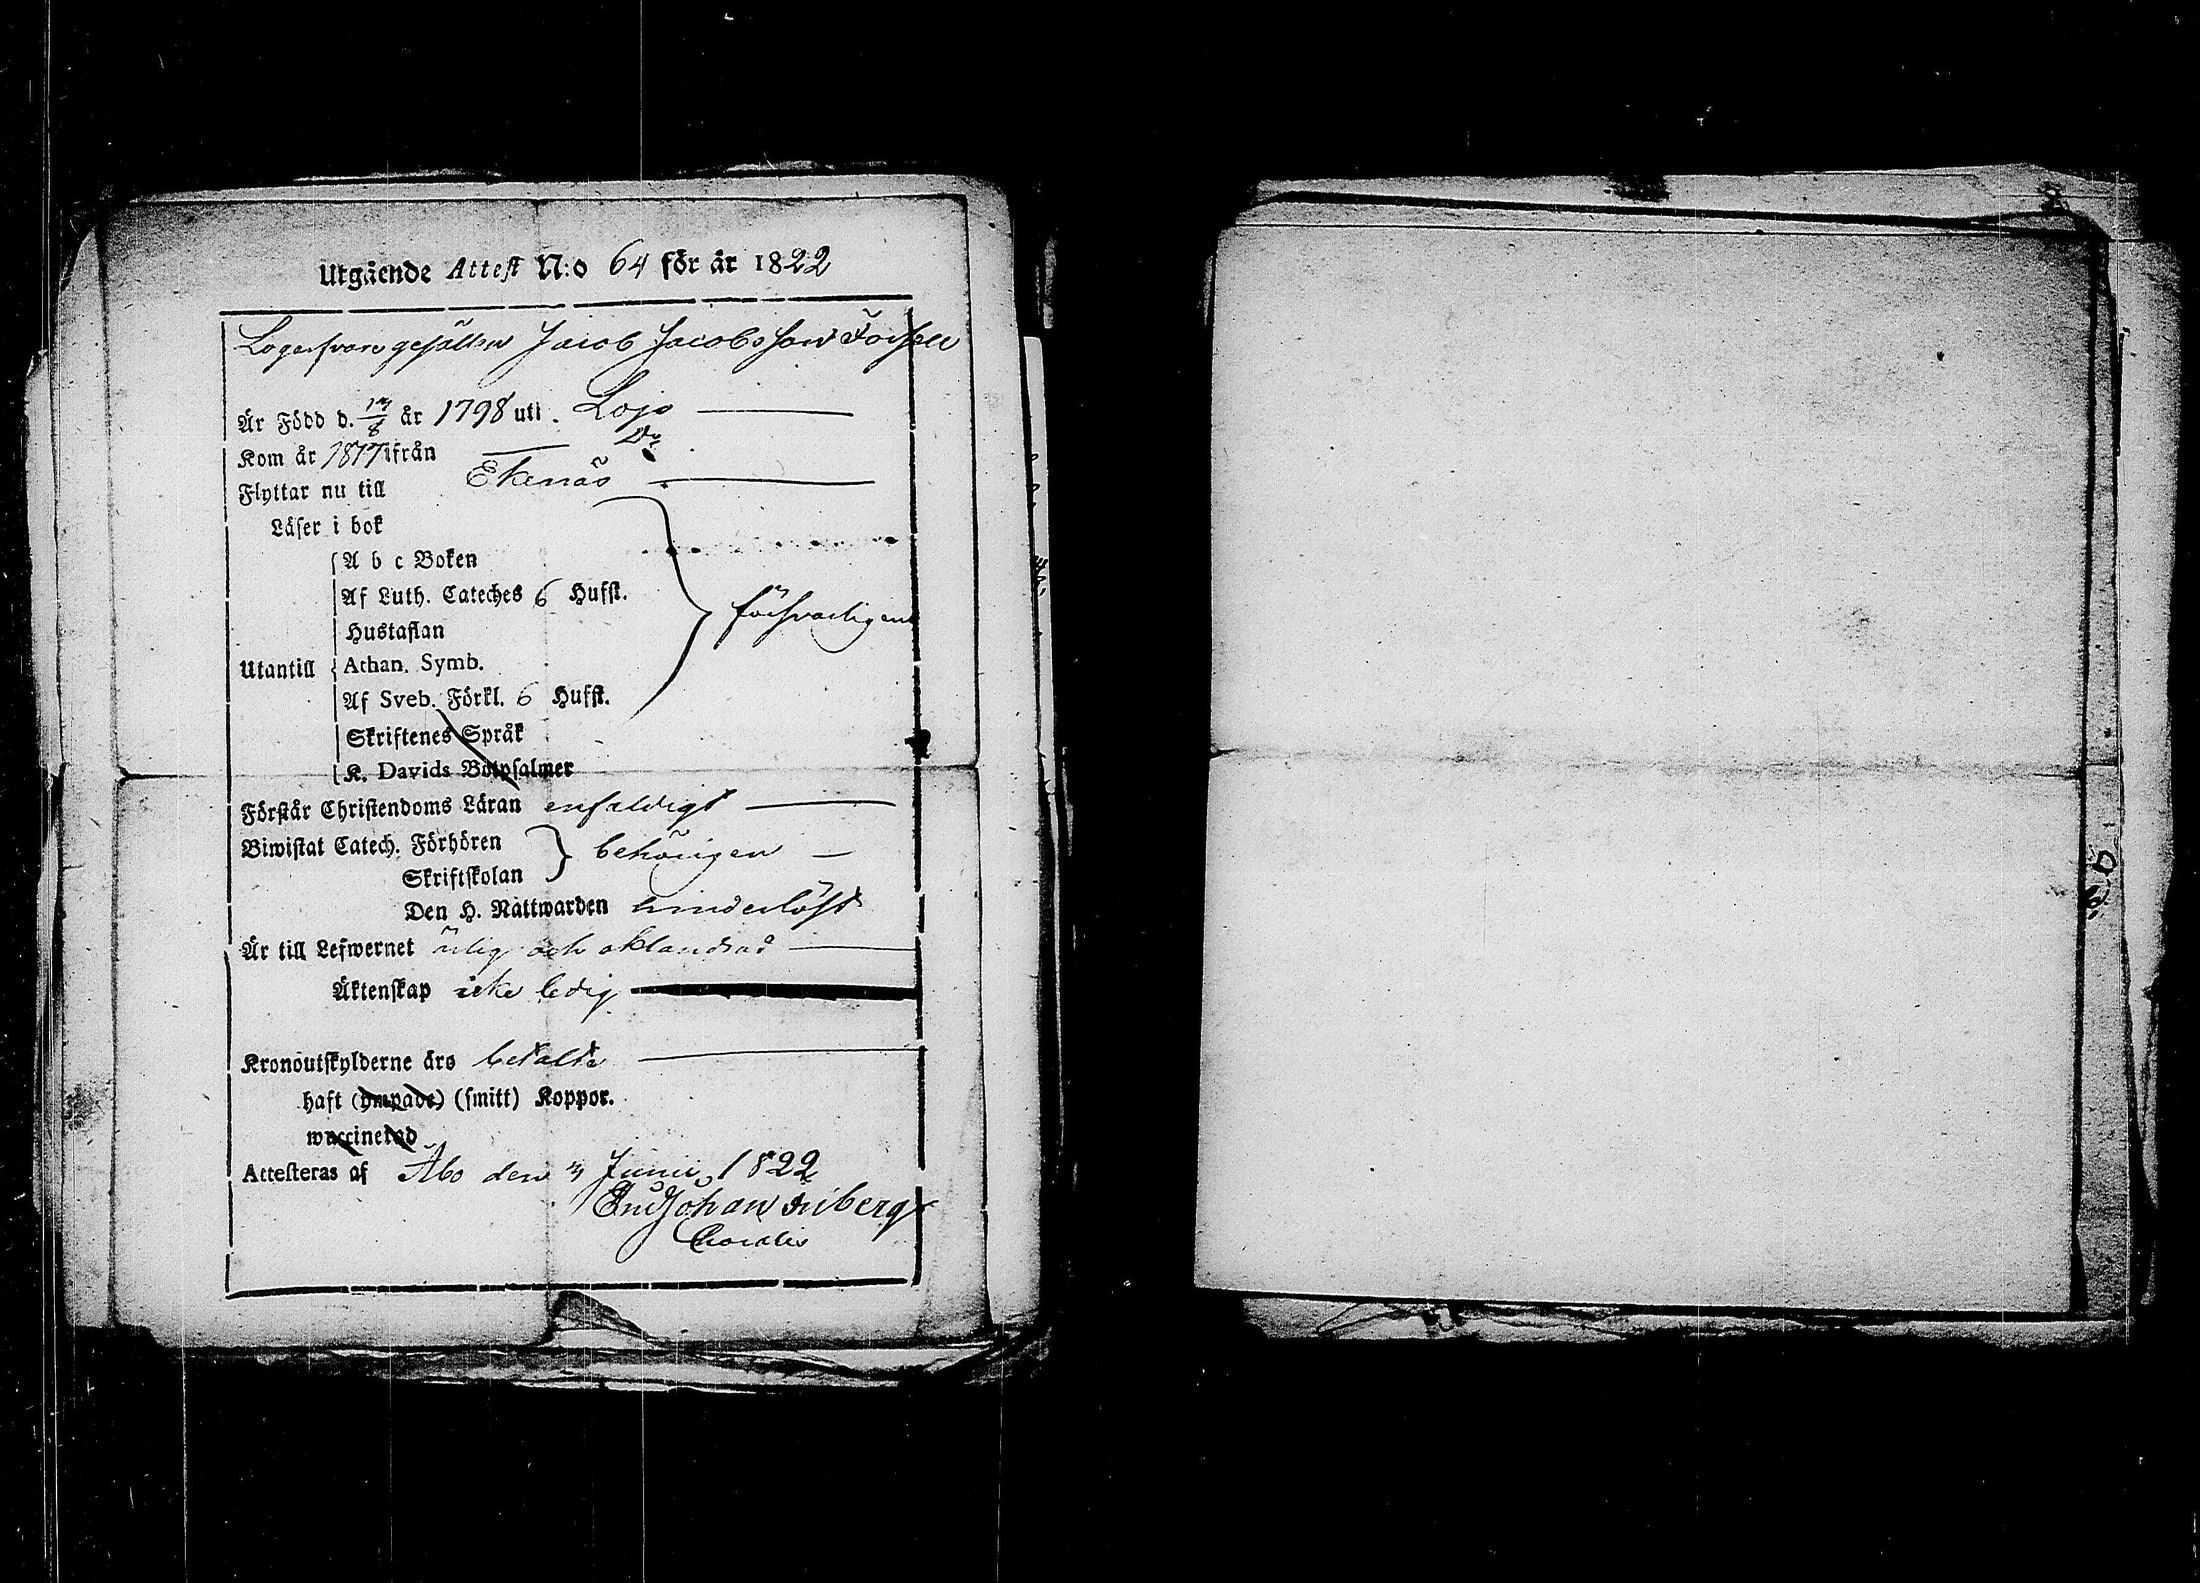 Utgående Attest N:o 64 för år 1822
gesällen Jacob Jacobsson Forsell
Är Född d. 17/8 år 1798 uti Lojo
Kom år 1817 ifrån Do
Flyttar nu till Ekenäs
Läser i bok
A b c Boken
Af Luth. Cateches 6 Hufst.
försvarligen
Hustaflan
Utantill Athan. Symb.
Af Sveb. Förkl. 6 Hufst.
Skriftenes Språk
K. Davids Botpsalmer
Förstår Christendoms Läran enfaldigt
Biwistat Catech. Förhören behörigen
Skriftskolan
Den H. Nattwarden hinderlöst
Är till Lefwernet ärlig och oklandrad
Äktenskap icke ledig
Kronoutskylderne äro betalte
haft (ympade) (smitt) Koppor.
waccinerad
Attesteras af Åbo den 4 Junii 1822
Johan